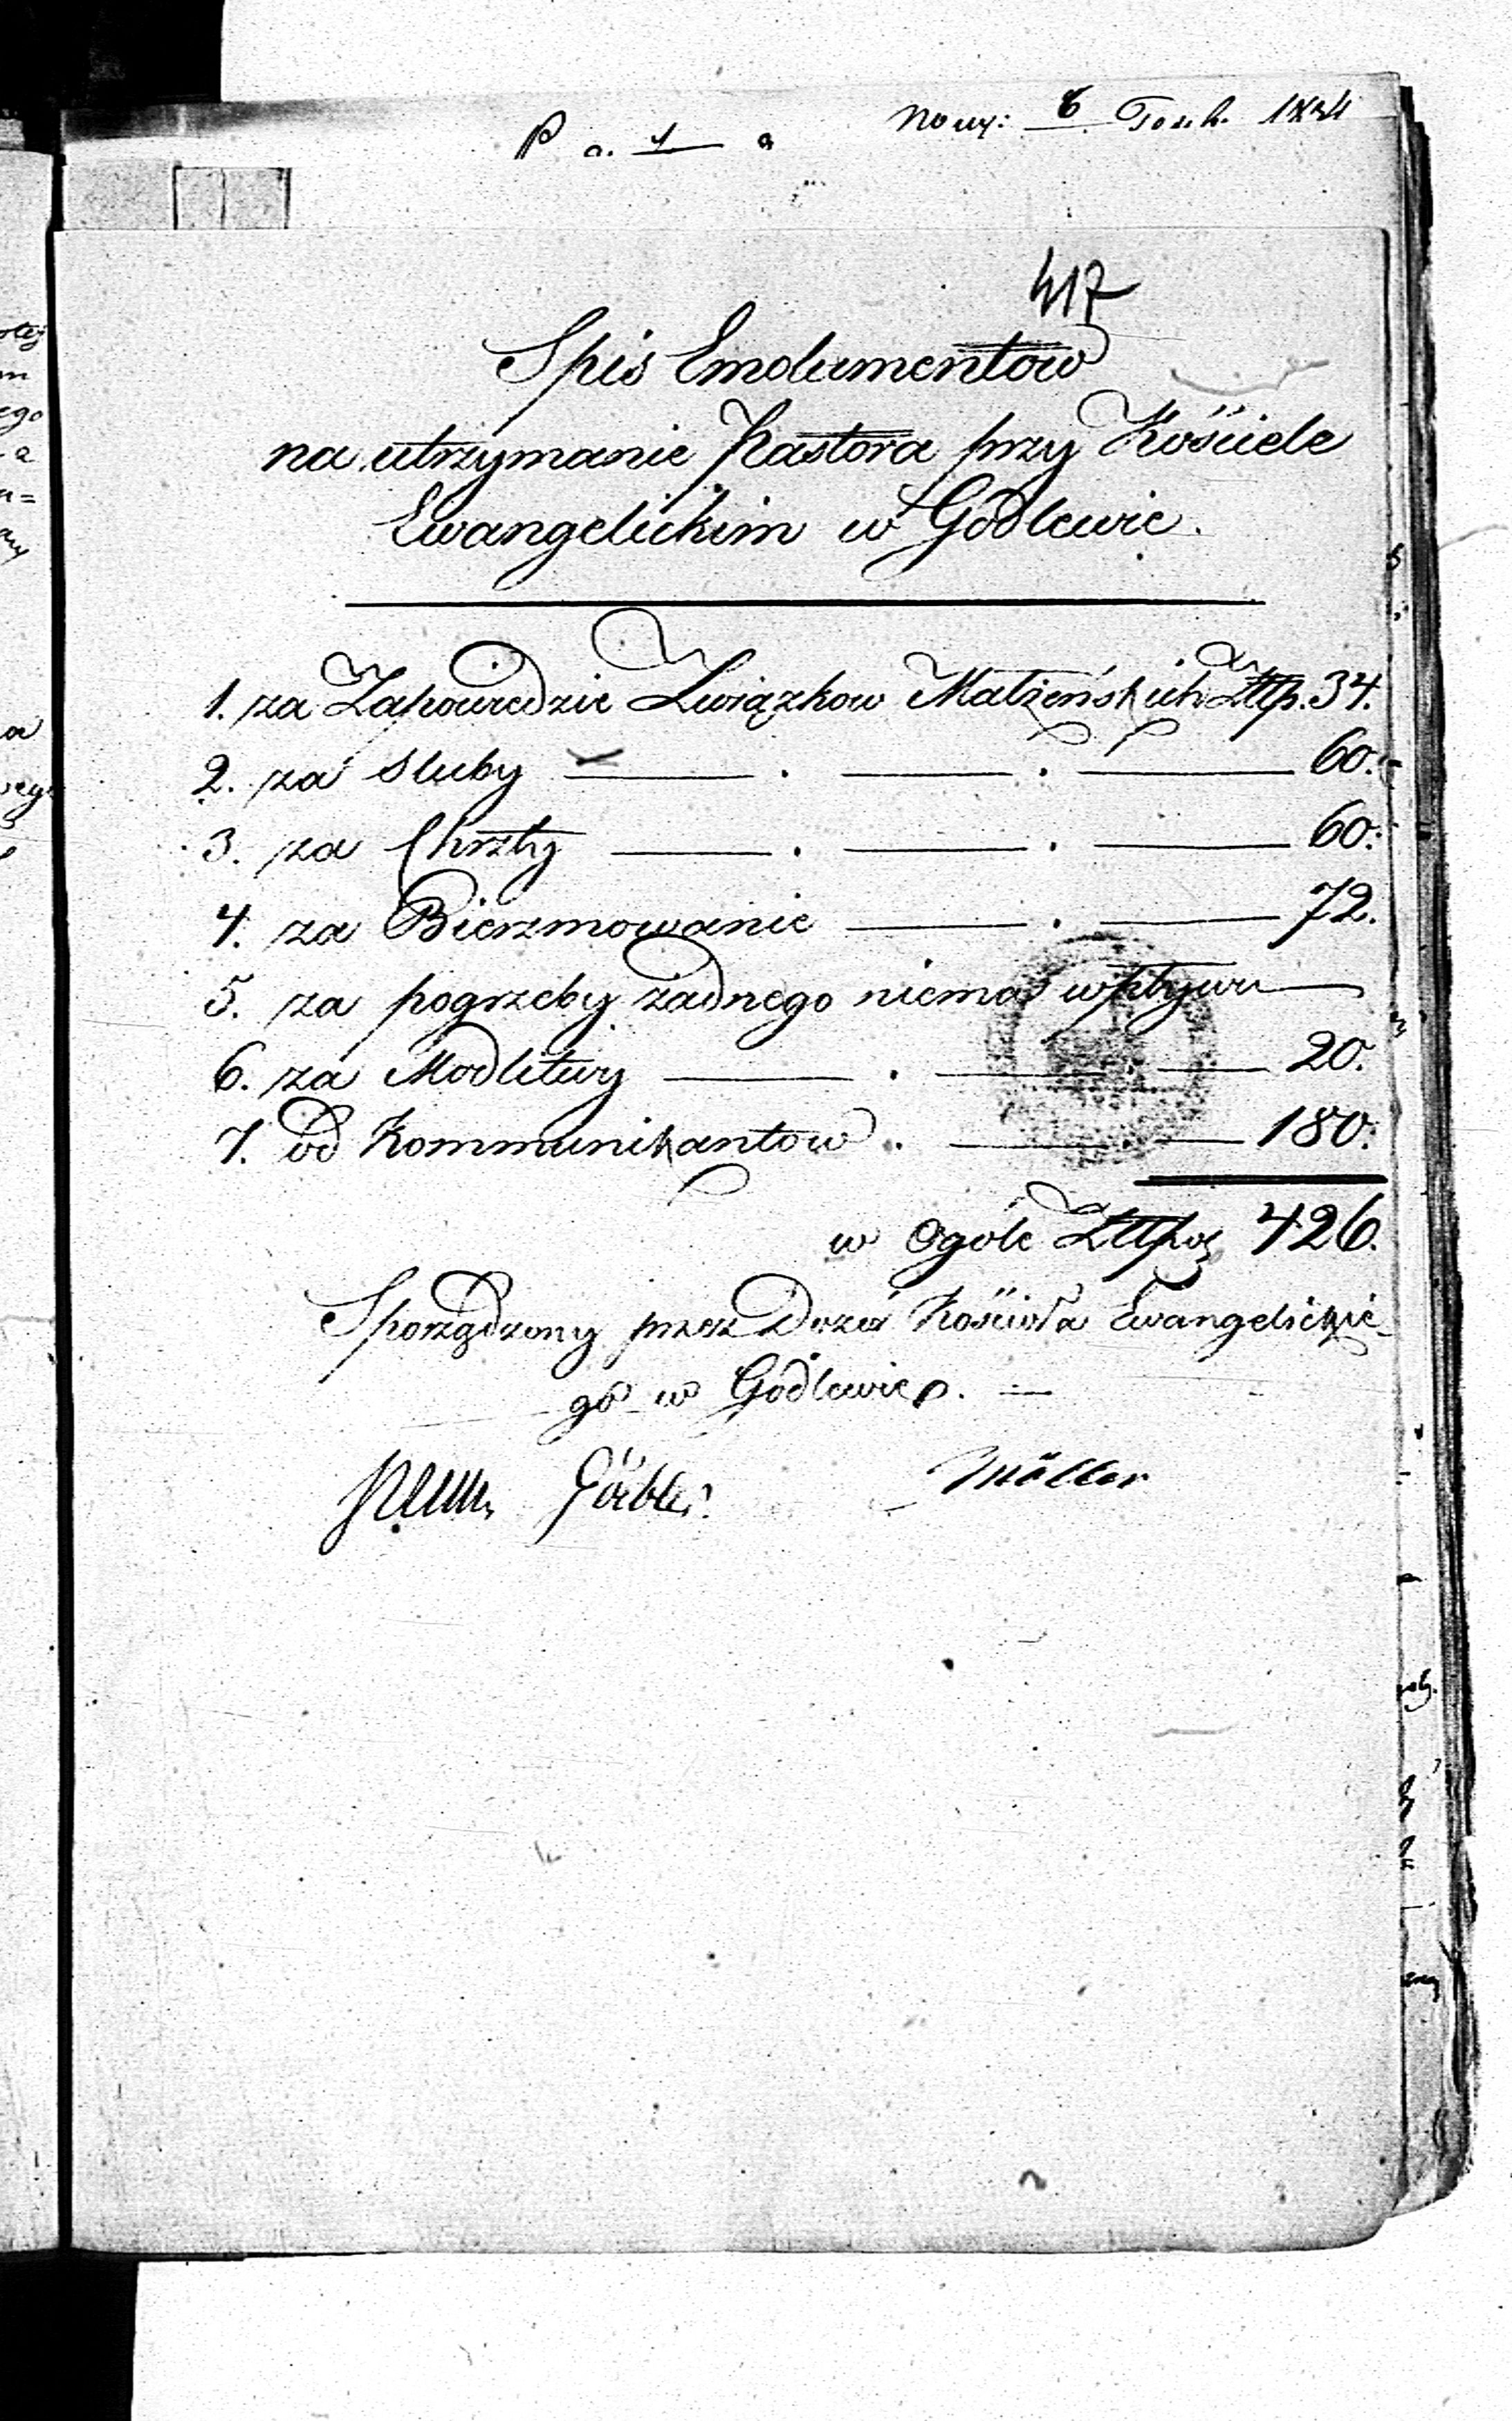 P a. 1 a
417
Spis Emolumentow
na utrzymanie Pastora przy Kościele
Ewangelickim w Godlewie.
1. za Zapowiedzie Związkow Małżeńskich Złłp. 34.
2. za sluby — . — . — 60.
3. za Chrzty — . — . — 60.
4. za Bierzmowanie — . — 72.
5. za pogrzeby żadnego niema wpływu —
6. za Modlitwy — . — . — 20.
7. od Kommunikantow . — . — 180.
w Ogóle Złłp. 426.
Sporządzony przez Dozór Kościoła Ewangelickie-
go w Godlewie. —
Möller